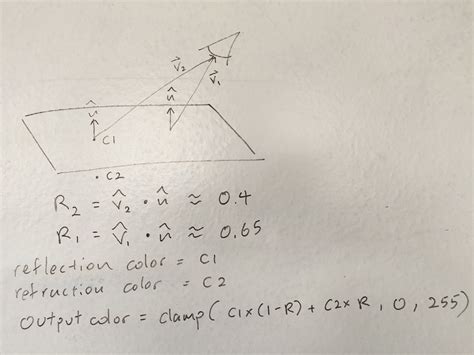 v⃗₂
n̂
n̂
v⃗₁
C1
C2
R₂ = v̂₂ · n̂ ≈ 0.4
R₁ = v̂₁ · n̂ ≈ 0.65
reflection color = C1
refraction color = C2
Output color = clamp( C1×(1-R) + C2×R , 0, 255)